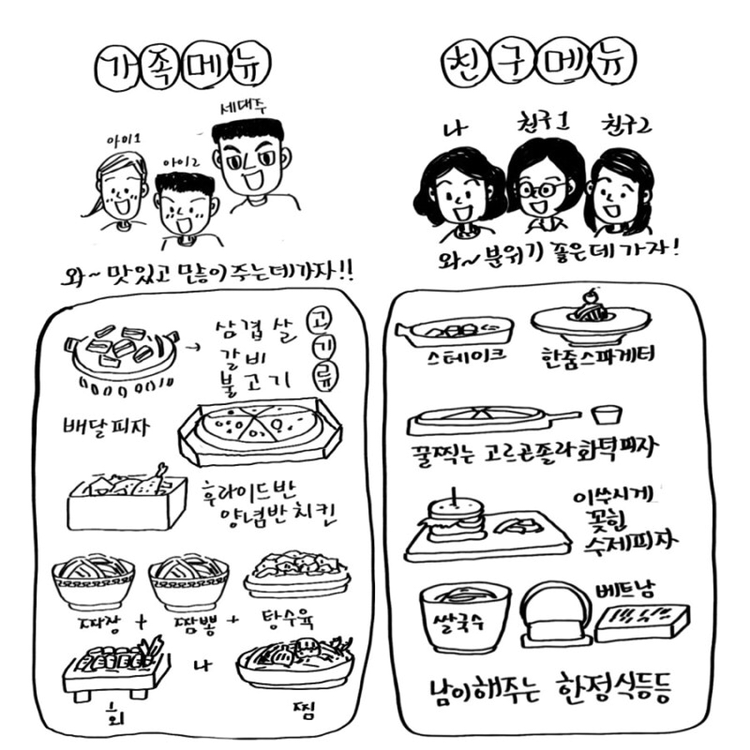 가족메뉴
세대주
아이1
아이2
와~ 맛있고 많이 주는데 가자!!
삼겹살
갈비
불고기
고기류
배달피자
후라이드반
양념반치킨
짜장 + 짬뽕 + 탕수육
회 나 찜
친구메뉴
나 친구1 친구2
와~ 분위기 좋은데 가자!
스테이크 한줌스파게터
꿀찍는 고르곤졸라화덕피자
이쑤시게
꽂힘
수제피자
쌀국수
베트남
남이해주는 한정식등등